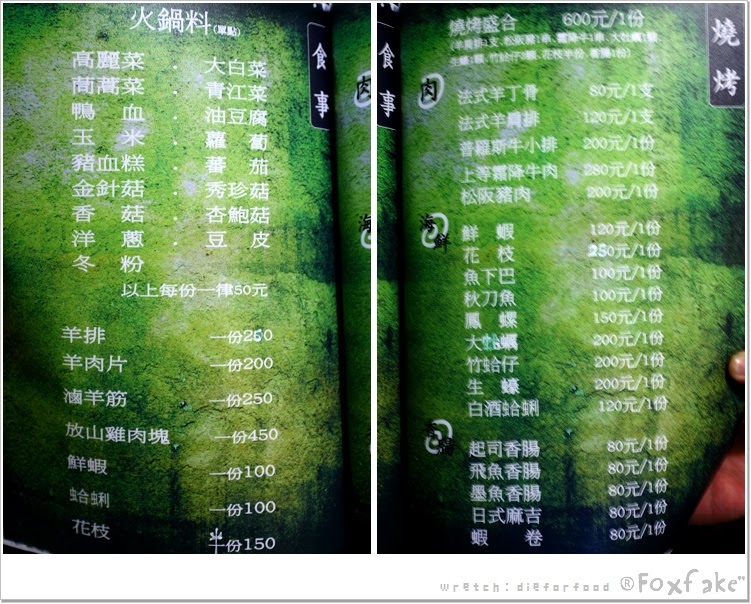 火鍋料(單點)
高麗菜 . 大白菜
茼蒿菜 . 青江菜
鴨血 . 油豆腐
玉米 . 蘿蔔
豬血糕 . 蕃茄
金針菇 . 秀珍菇
香菇 . 杏鮑菇
洋蔥 . 豆皮
冬粉
以上每份一律50元
羊排 一份250
羊肉片 一份200
滷羊筋 一份250
放山雞肉塊 一份450
鮮蝦 一份100
蛤蜊 一份100
花枝 一份150
食事
肉
海
食事
燒烤
燒烤盛合 600元/1份
肉
法式羊丁骨 80元/1支
法式羊肩排 120元/1支
普羅斯牛小排 200元/1份
上等霜降牛肉 280元/1份
松阪豬肉 200元/1份
海鮮
鮮蝦 120元/1份
花枝 250元/1份
魚下巴 100元/1份
秋刀魚 100元/1份
鳳螺 150元/1份
大蛤蠣 200元/1份
竹蛤仔 200元/1份
生蠔 200元/1份
白酒蛤蜊 120元/1份
起司香腸 80元/1份
飛魚香腸 80元/1份
墨魚香腸 80元/1份
日式麻吉 80元/1份
蝦卷 80元/1份
wretch:dieforfood ®Foxfake"